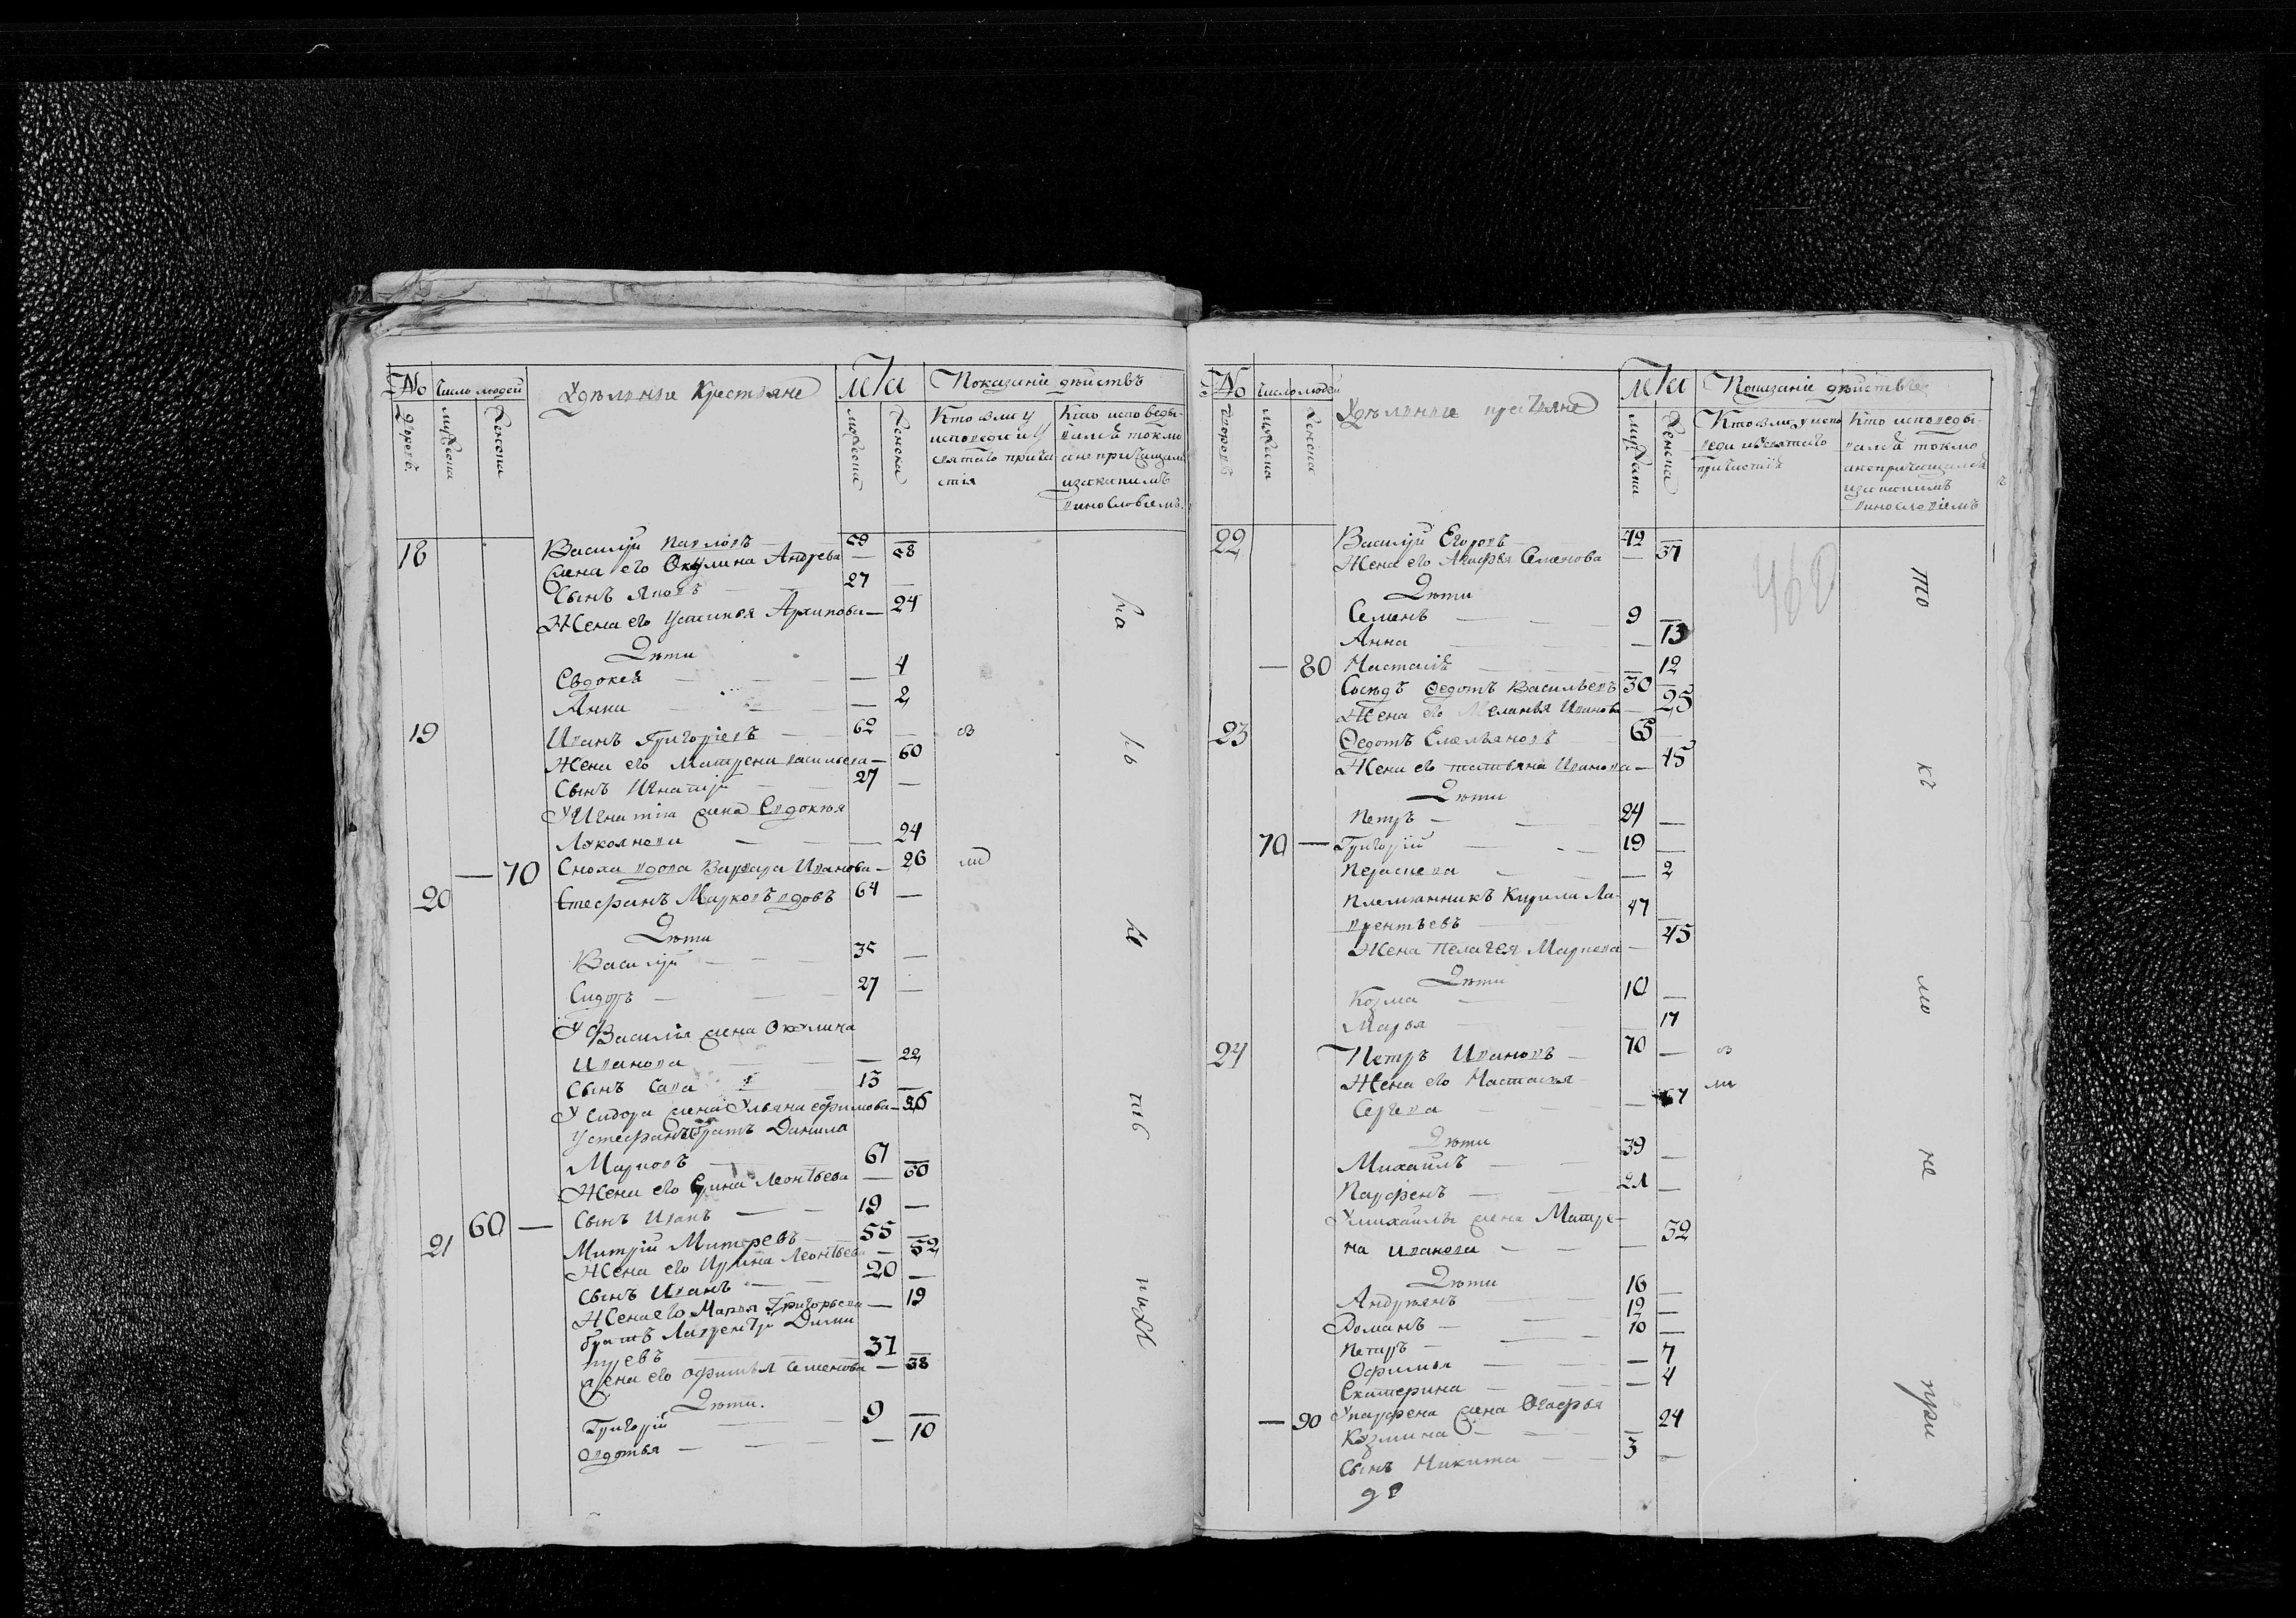 No Число людей Удѣльные Крестьяне лѣта Показаніе дѣйствъ
Дворовъ
мужеска
Женска
мужеска
Женска
Кто былъ у
исповеди и у
святаго прича
стія
Кто исповеды
вался токмо
а не причащался
и за какимъ
винословіемъ.
18 Василій Павловъ 59 —
Жена его Окулина Андрева — 58
Сынъ Яковъ 27 —
Жена его Устинья Архипова — 24
Дѣти
Евдокея — 4
Анна — 2
19 Иванъ Григорьевъ 62 —
Жена его Матрена васильева — 60
Сынъ Игнатій 27 —
У Игнатія жена Евдокья
Лукоянова — 24
— 70 Сноха вдова Варвара Иванова — 26
20 Стефанъ Марковъ вдовъ 64 —
Дѣти
Василій 35 —
Сидоръ 27 —
У Василья жена Окулина
Иванова — 22
Сынъ Сава 13 —
У Сидора жена Ульяна ефимова — 26
У стефана братъ Данила
Марковъ 67 —
Жена его Ирина Леонтьева — 60
60 — Сынъ Иванъ 19 —
21 Митрій Митревъ 55 —
Жена его Ирина Леонтьева — 52
Сынъ Иванъ 20 —
Жена его Марья Григорьева — 19
братъ Лаврентій Дими
тревъ 37 —
жена его офимья Семенова — 38
Дѣти.
Григорій 9 —
овдотья — 10
No Число людей Удѣльные крестьяне лѣта Показаніе дѣйствъ
Дворовъ
мужеска
Женска
мужеска
Женска
Кто былъ у испо
веди и святаго
причастія
Кто исповеды
вался токмо
а не причащался
и за какимъ
винословіемъ
22 Василій Егоровъ 42 —
Жена его Агафья Семенова — 37
Дѣти
Семенъ 9 —
Анна — 13
— 80 Настасія — 12
Сосѣдъ Федотъ Васильевъ 30 —
Жена его Меланья Иванова — 25
23 Федотъ Емельяновъ 65 —
Жена его татьяна Иванова — 45
Дѣти
Петръ 24 —
70 — Григорій 19 —
Парасковья — 2
племянникъ Кирила Ла-
врентьевъ 47 —
Жена Пелагея Маркова — 45
Дѣти
Козма 10 —
Марья 17
24 Петръ Ивановъ 70 —
Жена его Настасья
Сергева — 67
Дѣти
Михаилъ 39 —
Парфенъ 21 —
У михайлы жена Матре-
на Иванова — 32
Дѣти
Андреянъ 16 —
Романъ 12 —
Петръ 10 —
Офимья — 7
Екатерина — 4
— 90 У парфена жена Огафья
Козмина 24
Сынъ Никита 3 —